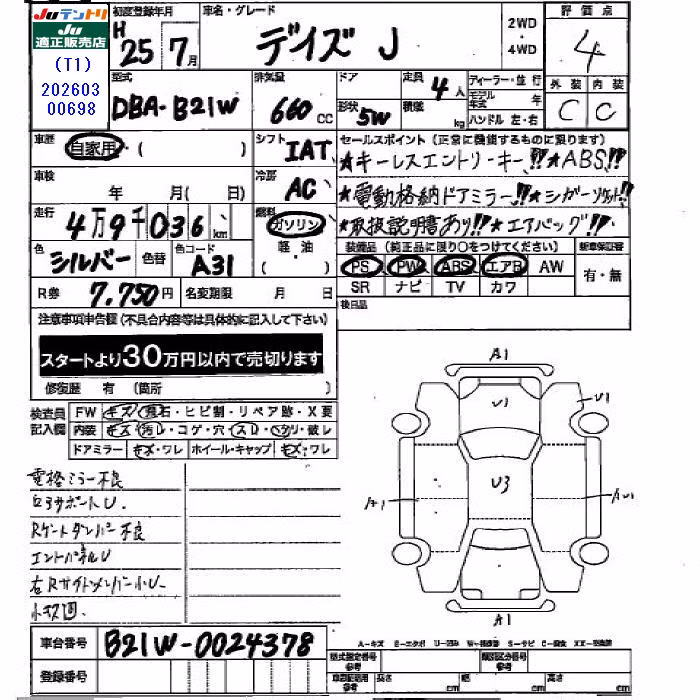 JUテントリ
JU
適正販売店
(T1)
202603
00698
初度登録年月
H
25年 7月
車名・グレード
デイズ J
2WD
・
4WD
評価点
4
外装 内装
C C
型式
DBA-B21W
排気量
660 CC
ドア
形状 5W
定員 4人
積載 kg
ディーラー・並行
モデル年式 年
ハンドル 左・右
車歴
自家用 ( )
シフト
IAT
セールスポイント (正常に機能するものに限ります)
★キーレスエントリーキー!!★ABS!!
★電動格納ドアミラー!!★シガーソケット!!
★取扱説明書あり!!★エアバッグ!!
車検
年 月( 日)
冷房
AC
走行
4万9千036 km
燃料
ガソリン
軽・油
( )
色
シルバー
色替
色コード
A31
装備品 (純正品に限り○をつけてください)
新車保証書
PS PW ABS エアB AW
SR ナビ TV カワ
有・無
R券
7,750円
名変期限 月 日
後日品
注意事項申告欄 (不具合内容等は具体的に記入して下さい)
スタートより30万円以内で売切ります
修復歴 有 (箇所 )
検査員
記入欄
FW キズ・飛石・ヒビ割・リペア跡・X要
内装 キズ・汚レ・コゲ・穴・スレ・ヘタリ・破レ
ドアミラー キズ・ワレ ホイール・キャップ キズ・ワレ
電格ミラー不良
コアサポートU.
Rゲートダンパー不良
エンドパネルU
右RサイドメンバーU-
小凹.
A1
U1
U1
U3
A1
AU1
A1
車台番号
B21W-0024378
登録番号
A-キズ E-エクボ U-凹み W-補修跡 S-サビ C-腐食 XX-交換済
型式指定番号
参考
類別区分番号
車庫証明用
参考
長さ cm 幅 cm 高さ cm